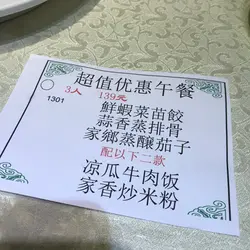 超值优惠午餐
3人 139元
1301
鮮蝦菜苗餃
蒜香蒸排骨
家鄉蒸釀茄子
配以下二款
凉瓜牛肉饭
家香炒米粉